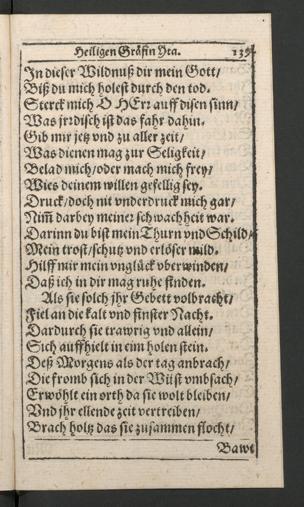 Heiligen Gräfin Yta. 135
In dieser Wildnuß dir mein Gott/
Biß du mich holest durch den tod.
Sterck mich O HErr auff disen sinn/
Was jrrdisch ist das fahr dahin.
Gib mir jetz vnd zu aller zeit/
Was dienen mag zur Seligkeit/
Belad mich/oder mach mich frey/
Wies deinem willen gefellig sey.
Druck/doch nit vnderdruck mich gar/
Nim̃ darbey meiner schwachheit war.
Darinn du bist mein Thurn vnd Schild/
Mein trost/schutz vnd erlöser mild.
Hilff mir mein vnglück vberwinden/
Daß ich in dir mag ruhe finden.
Als sie solch jhr Gebett volbracht/
Fiel an die kalt vnd finster Nacht.
Dardurch sie trawrig vnd allein/
Sich auffhielt in eim holen stein.
Deß Morgens als der tag anbrach/
Die fromb sich in der Wüst vmbsach/
Erwöhlt ein orth da sie wolt bleiben/
Vnd jhr ellende zeit vertreiben/
Brach holtz das sie zusammen flocht/
Bawt